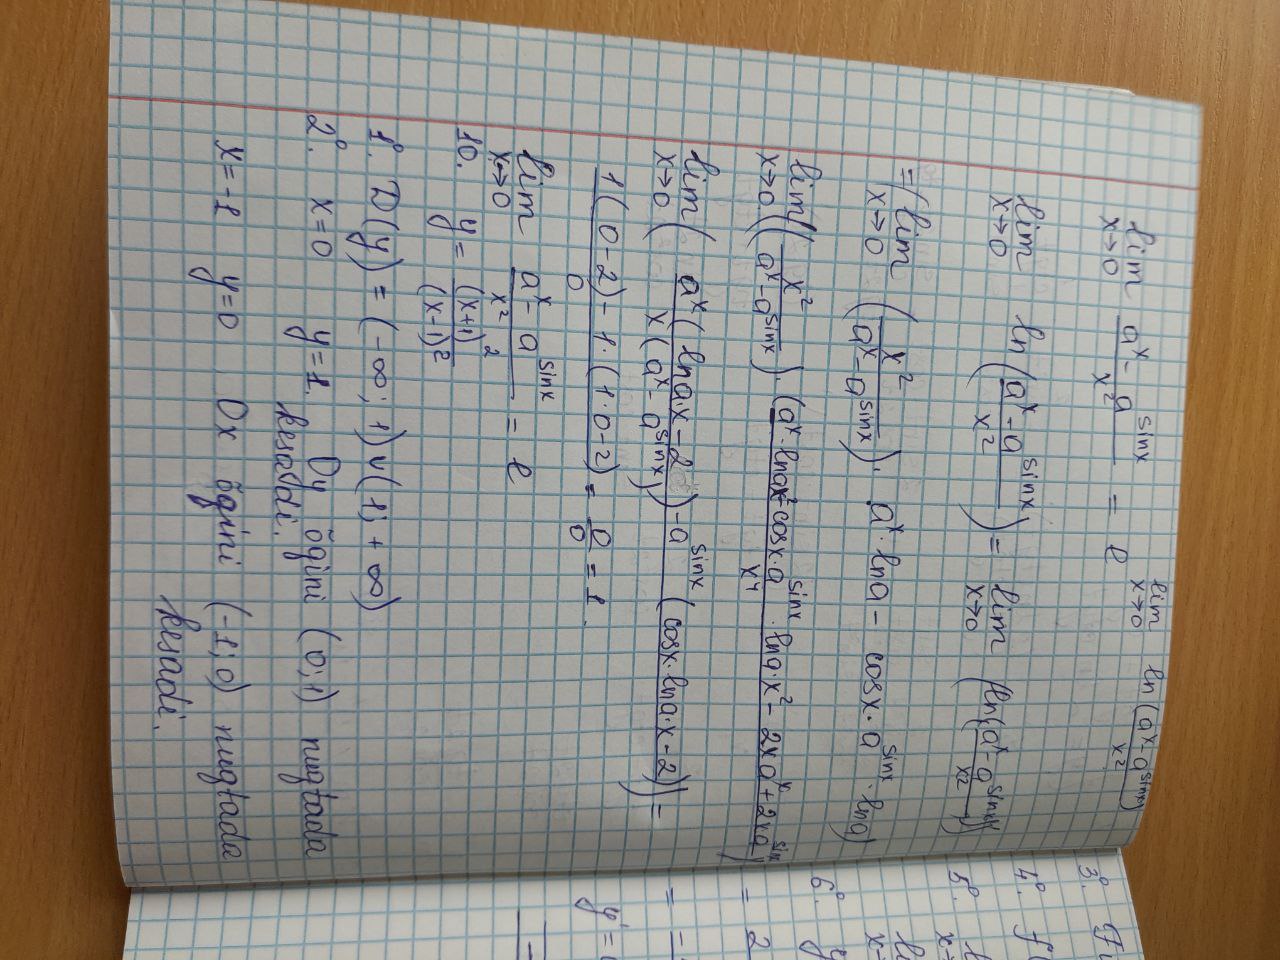 lim x→0 (a^x - a^sinx)/x^2 = e^(lim x→0 ln (a^x - a^sinx)/x^2)
lim x→0 ln((a^x - a^sinx)/x^2) = lim x→0 (ln((a^x - a^sinx)/x^2))
=(lim x→0 (x^2/(a^x - a^sinx)) · a^x · lna - cosx · a^sinx · lna)
lim x→0 ((x^2/(a^x - a^sinx)) · (a^x · lnax^2 - cosx · a^sinx · lna · x^2 - 2xa^x + 2xa^sinx)/x^4)
lim x→0 ((a^x(lna·x - 2) - a^sinx(cosx·lna·x - 2))/(x(a^x - a^sinx))) =
(1(0-2) - 1·(1·0-2))/0 = 0/0 = 1.
lim x→0 (a^x - a^sinx)/x^2 = e
10. y = (x+1)^2/(x-1)^2
1°. D(y) = (-∞; 1) ∪ (1; +∞)
2°. x=0 y=1. Oy õqini (0;1) nuqtada
kesadi.
x=-1 y=0 Ox õqini (-1;0) nuqtada
kesadi.
3°.
4°.
5°.
x→
x→
6°. y
= 2
=
y' =
=